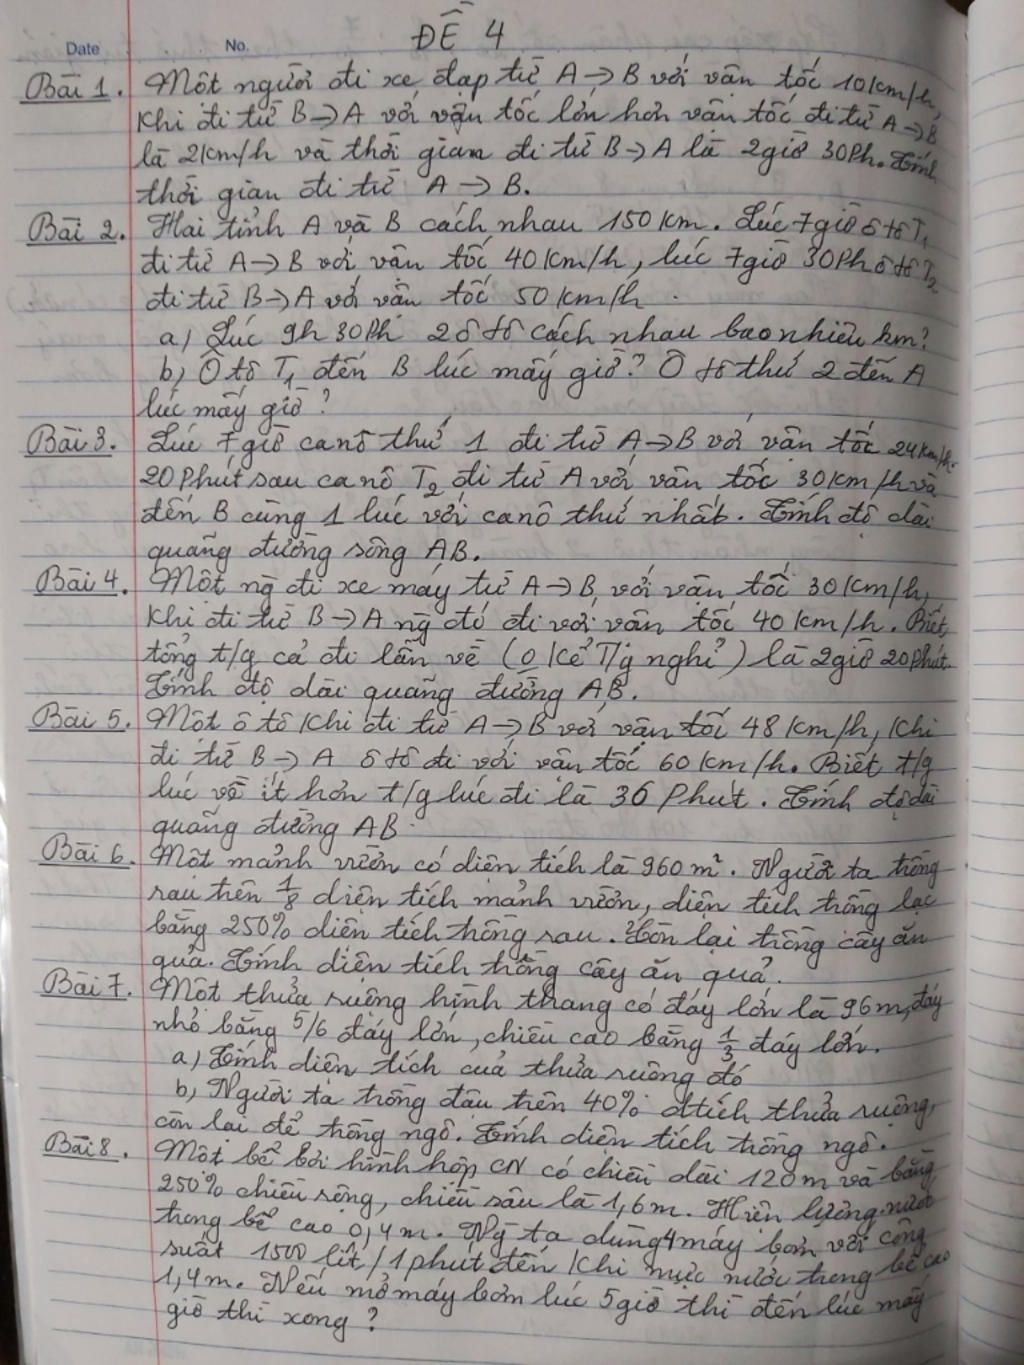 Date No. ĐỀ 4
Bài 1. Một người đi xe đạp từ A → B với vận tốc 10 km/h,
Khi đi từ B → A với vận tốc lớn hơn vận tốc đi từ A → B
là 2 km/h và thời gian đi từ B → A là 2 giờ 30 Ph. Tính
thời gian đi từ A → B.
Bài 2. Hai tỉnh A và B cách nhau 150 km. Lúc 7 giờ ô tô T1
đi từ A → B với vận tốc 40 km/h, lúc 7 giờ 30 Ph ô tô T2
đi từ B → A với vận tốc 50 km/h.
a) Lúc 9h 30 Ph 2 ô tô cách nhau bao nhiêu km?
b) Ô tô T1 đến B lúc mấy giờ? Ô tô thứ 2 đến A
lúc mấy giờ?
Bài 3. Lúc 7 giờ ca nô thứ 1 đi từ A → B với vận tốc 24 km/h.
20 Phút sau ca nô T2 đi từ A với vận tốc 30 km/h và
đến B cùng 1 lúc với ca nô thứ nhất. Tính độ dài
quãng đường sông AB.
Bài 4. Một ng đi xe máy từ A → B, với vận tốc 30 km/h,
Khi đi từ B → A ng đó đi với vận tốc 40 km/h. Biết
tổng t/g cả đi lẫn về (0 Kể T/g nghỉ) là 2 giờ 20 phút.
Tính độ dài quãng đường AB.
Bài 5. Một ô tô Khi đi từ A → B với vận tốc 48 km/h, Khi
đi từ B → A ô tô đi với vận tốc 60 km/h. Biết t/g
lúc về ít hơn t/g lúc đi là 36 Phút. Tính độ dài
quãng đường AB.
Bài 6. Một mảnh vườn có diện tích là 960 m². Người ta trồng
rau trên 1/8 diện tích mảnh vườn, diện tích trồng lạc
bằng 250% diện tích trồng rau. Còn lại trồng cây ăn
quả. Tính diện tích trồng cây ăn quả.
Bài 7. Một thửa ruộng hình thang có đáy lớn là 96 m, đáy
nhỏ bằng 5/6 đáy lớn, chiều cao bằng 1/3 đáy lớn.
a) Tính diện tích của thửa ruộng đó
b) Người ta trồng đậu trên 40% dtích thửa ruộng,
còn lại để trồng ngô. Tính diện tích trồng ngô.
Bài 8. Một bể bơi hình hộp CN có chiều dài 120 m và bằng
250% chiều rộng, chiều sâu là 1,6 m. Hiện lượng nước
trong bể cao 0,4 m. Ng ta dùng 4 máy bơm với công
suất 1500 lít / 1 phút đến Khi mực nước trong bể cao
1,4 m. Nếu mở máy bơm lúc 5 giờ thì đến lúc mấy
giờ thì xong?